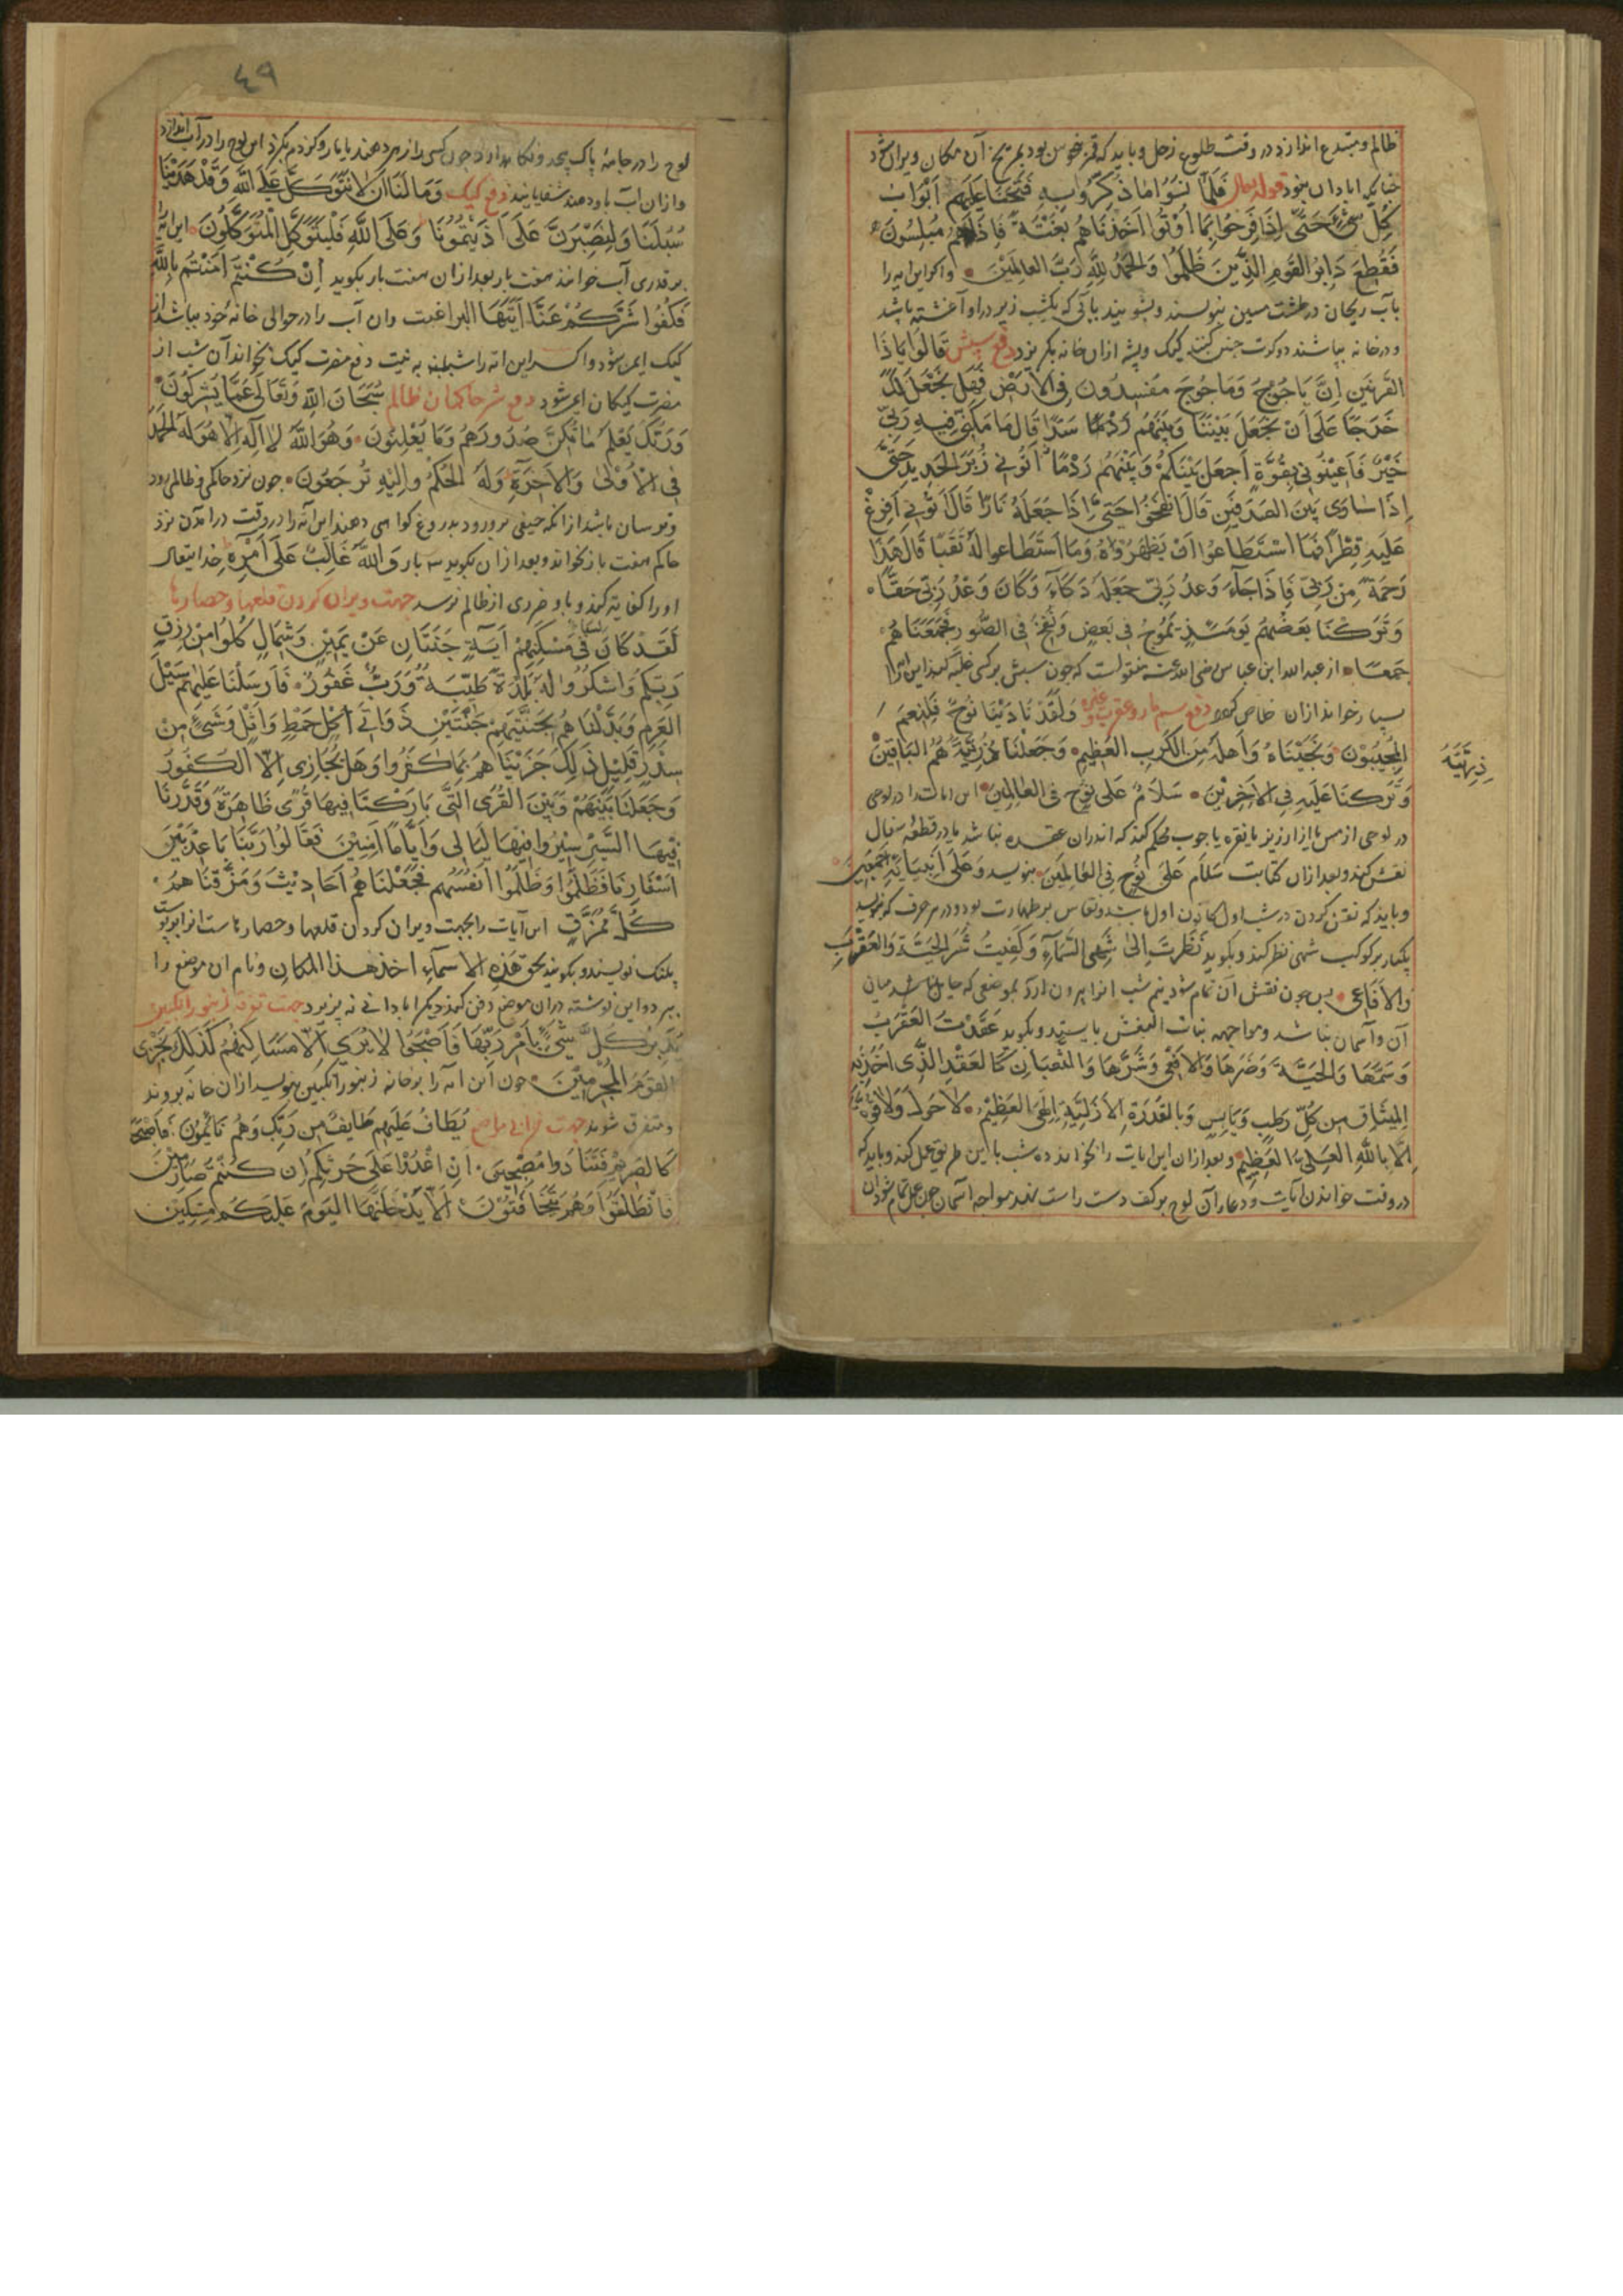 ظالم و مبتدع اندازد در وقت طلوع زحل و باید که قمر منحوس بود بمریخ آن مکان ویران شود
چنانکه ابادان نبود قوله تعالی فَلَمَّا نَسُوا مَا ذُكِّرُوا بِهِ فَتَحْنَا عَلَيْهِمْ أَبْوَابَ
كُلِّ شَيْءٍ حَتَّى إِذَا فَرِحُوا بِمَا أُوتُوا أَخَذْنَاهُمْ بَغْتَةً فَإِذَا هُمْ مُبْلِسُونَ
فَقُطِعَ دَابِرُ القَوْمِ الَّذِينَ ظَلَمُوا وَالْحَمْدُ لِلَّهِ رَبِّ العَالَمِينَ واکر این ایه را
بآب ریحان در طشت مسین بنویسند و بشویند بآبی که یکشب زیر در او آغشته باشد
و در خانه بپاشند دو کرت چنین کنند کیک و پشه ازان خانه بکریزد دفع سپش قَالُوا يَا ذَا
القَرْنَيْنِ إِنَّ يَاجُوجَ وَمَاجُوجَ مُفْسِدُونَ فِي الأَرْضِ فَهَلْ نَجْعَلُ لَكَ
خَرْجًا عَلَى أَنْ تَجْعَلَ بَيْنَنَا وَبَيْنَهُمْ سَدًّا قَالَ مَا مَكَّنِّي فِيهِ رَبِّي
خَيْرٌ فَأَعِينُونِي بِقُوَّةٍ أَجْعَلْ بَيْنَكُمْ وَبَيْنَهُمْ رَدْمًا آتُونِي زُبَرَ الْحَدِيدِ حَتَّى
إِذَا سَاوَى بَيْنَ الصَّدَفَيْنِ قَالَ انْفُخُوا حَتَّى إِذَا جَعَلَهُ نَارًا قَالَ آتُونِي أُفْرِغْ
عَلَيْهِ قِطْرًا فَمَا اسْتَطَاعُوا أَنْ يَظْهَرُوهُ وَمَا اسْتَطَاعُوا لَهُ نَقْبًا قَالَ هَذَا
رَحْمَةٌ مِنْ رَبِّي فَإِذَا جَاءَ وَعْدُ رَبِّي جَعَلَهُ دَكَّاءَ وَكَانَ وَعْدُ رَبِّي حَقًّا
وَتَرَكْنَا بَعْضَهُمْ يَوْمَئِذٍ يَمُوجُ فِي بَعْضٍ وَنُفِخَ فِي الصُّورِ فَجَمَعْنَاهُمْ
جَمْعًا از عبدالله ابن عباس رضی الله عنه منقولست که چون سپش بر کسی غلبه کند این ایه را
بسیار خواند ازان خلاص کردد دفع سم مار و عقرب و غیره وَلَقَدْ نَادَيْنَا نُوحٌ فَلَنِعْمَ
الْمُجِيبُونَ وَنَجَّيْنَاهُ وَأَهْلَهُ مِنَ الْكَرْبِ العَظِيمِ وَجَعَلْنَا ذُرِّيَّتَهُ هُمُ الْبَاقِينَ
ذُرِّيَّتَهُ
وَتَرَكْنَا عَلَيْهِ فِي الآخِرِينَ سَلَامٌ عَلَى نُوحٍ فِي العَالَمِينَ این ایات را در لوحی
در لوحی از مس یا از ارزیز یا نقره یا چوب محکم کند که اندران عقده نباشد یا در قطعه سفال
نقش کند و بعد ازان کتابت سَلَام عَلَى نُوحٍ فِي العَالَمِينَ بنویسد وَعَلَى أَنْبِيَائِهِ أَجْمَعِينَ
و باید که نقش کردن در شب اول کانون اول باشد و نقاش بر طهارت بود و در هر حرف که نویسد
یکبار بر کوکب سُهی نظر کند و بکوید نَظَرْتُ إِلَى سُهَى السَّمَاءِ وَكُفِيتُ شَرَّ الْحَيَّةِ وَالْعَقْرَبِ
وَالأَفَاعِي پس چون نقش آن تمام شود نیم شب انرا بیرون ارد بموضعی که حایل نباشد میان
آن و آسمان نباشد و مواجهه بنات النعش بایستد و بکوید عَقَدْتُ العَقْرَبَ
وَسَمَّهَا وَالْحَيَّةَ وَضَرَّهَا وَالأَفْعَى وَشَرَّهَا وَالثُّعْبَانِ كَالعَقْدِ الَّذِي أُخِذَ بِهِ
الْمِيثَاقُ مِنْ كُلِّ رَطْبٍ وَيَابِسٍ وَبِالقُدْرَةِ الأَزَلِيَّةِ إِلَهِيَ العَظِيمُ لَا حَوْلَ وَلَا قُوَّةَ
إِلَّا بِاللَّهِ العَلِيِّ العَظِيمِ و بعد ازان این ایات را بخواند ده شب با این طریق عمل کند و باید که
در وقت خواندن آیات و دعا آن لوح بر کف دست راست نهد مواجه اسمان چون عمل تمام شود ان
٤٩
لوح را در جامهٔ پاک پیچد و نکاه دارد چون کسی را زهر دهند یا مار و کژدم بکزد این لوح را در آب اندازد
و ازان آب باو دهند شفا یابد دفع کیک وَمَا لَنَا أَنْ لَا نَتَوَكَّلَ عَلَى اللَّهِ وَقَدْ هَدَيْنَا
سُبُلَنَا وَلَنَصْبِرَنَّ عَلَى أَذَيْتُمُونَا وَعَلَى اللَّهِ فَلْيَتَوَكَّلِ الْمُتَوَكِّلُونَ این آیه را
بر قدری آب خوانند هفت بار بعد ازان هفت بار بکوید إِنْ كُنْتُمْ آمَنْتُمْ بِاللَّهِ
فَكُفُّوا شَرَّكُمْ عَنَّا أَيَّتُهَا البراغیث وان آب را در حوالی خانهٔ خود بپاشد از
کیک ایمن شود و اکر این ایه را شنبه به نیت دفع مضرت کیک بخواند آن شب از
مضرت کیکان ایمن شود دفع شر حاکمان ظالم سُبْحَانَ اللَّهِ وَتَعَالَى عَمَّا يُشْرِكُونَ
وَرَبُّكَ يَعْلَمُ مَا تُكِنُّ صُدُورُهُمْ وَمَا يُعْلِنُونَ وَهُوَ اللَّهُ لَا إِلَهَ إِلَّا هُوَ لَهُ الْحَمْدُ
فِي الأُولَى وَالآخِرَةِ وَلَهُ الْحُكْمُ وَإِلَيْهِ تُرْجَعُونَ چون نزد حاکمی و ظالمی رود
و ترسان باشد از انکه حیفی برو رود بدروغ کواهی دهند این آیه را در وقت در امدن نزد
حاکم هفت بار بخواند و بعد ازان بکوید سه بار وَاللَّهُ غَالِبٌ عَلَى أَمْرِهِ خدایتعالی
او را کفایه کند و باو ضرری از ظالم نرسد جهت ویران کردن قلعها و حصارها
لَقَدْ كَانَ لسباء فِي مَسْكَنِهِمْ آيَةٌ جَنَّتَانِ عَنْ يَمِينٍ وَشِمَالٍ كُلُوا مِنْ رِزْقِ
رَبِّكُمْ وَاشْكُرُوا لَهُ بَلْدَةٌ طَيِّبَةٌ وَرَبٌّ غَفُورٌ فَأَرْسَلْنَا عَلَيْهِمْ سَيْلَ
العَرِمِ وَبَدَّلْنَاهُمْ بِجَنَّتَيْهِمْ جَنَّتَيْنِ ذَوَاتَيْ أُكُلٍ خَمْطٍ وَأَثْلٍ وَشَيْءٍ مِنْ
سِدْرٍ قَلِيلٍ ذَلِكَ جَزَيْنَاهُمْ بِمَا كَفَرُوا وَهَلْ نُجَازِي إِلَّا الْكَفُورَ
وَجَعَلْنَا بَيْنَهُمْ وَبَيْنَ القُرَى الَّتِي بَارَكْنَا فِيهَا قُرًى ظَاهِرَةً وَقَدَّرْنَا
فِيهَا السَّيْرَ سِيرُوا فِيهَا لَيَالِي وَأَيَّامًا آمِنِينَ فَقَالُوا رَبَّنَا بَاعِدْ بَيْنَ
أَسْفَارِنَا وَظَلَمُوا أَنْفُسَهُمْ فَجَعَلْنَاهُمْ أَحَادِيثَ وَمَزَّقْنَاهُمْ
كُلَّ مُمَزَّقٍ این آیات را بجهت ویران کردن قلعها و حصارهاست انرا بر پوست
پلنک نویسند و بکویند بحق هَذِهِ الأسماءِ اخذ هذا المکان و نام ان موضع را
ببرد و این نوشته دران موضع دفن کند دیکر ابادانی نپذیرد جهت تفرقه زنبور انکبین
تُدَمِّرُ كُلَّ شَيْءٍ بِأَمْرِ رَبِّهَا فَأَصْبَحُوا لَا يُرَى إِلَّا مَسَاكِنُهُمْ كَذَلِكَ نَجْزِي
القَوْمَ الْمُجْرِمِينَ چون این ایه را بر خانه زنبور انکبین بنویسد ازان خانه بروند
و متفرق شوند جهت خرابی مواضع يُطَافُ عَلَيْهِمْ طَائِفٌ مِنْ رَبِّكَ وَهُمْ نَائِمُونَ فَأَصْبَحَتْ
كَالصَّرِيمِ فَتَنَادَوْا مُصْبِحِينَ أَنِ اغْدُوا عَلَى حَرْثِكُمْ إِنْ كُنْتُمْ صَارِمِينَ
فَانْطَلَقُوا وَهُمْ يَتَخَافَتُونَ أَلَّا يَدْخُلَنَّهَا اليَوْمَ عَلَيْكُمْ مِسْكِينٌ